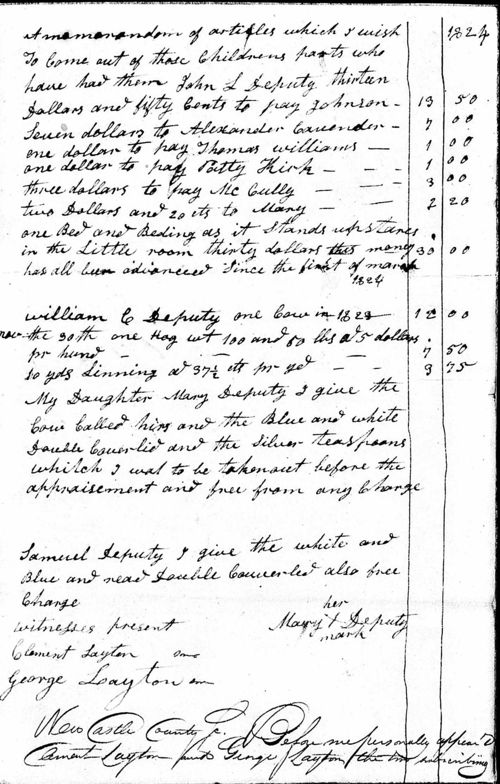 A memorandom of articles which I wish 1824
To Come out of those Childrens parts who
have had them John L Deputy thirteen
Dollars and fifty Cents to pay Johnson - 13 50
Seven dollars to Alexander Cavender - 7 00
one dollar to pay Thomas williams - 1 00
one dollar to pay Patty Kirk - - - 1 00
three dollars to pay Mc Cully - - - 3 00
two Dollars and 20 cts to Mary - - 2 20
one Bed and Beding as it Stands upstares
in the Little room thirty dollars this money 30 00
has all been advanced Since the first of march
1824
william C Deputy one Cow in 1823 - 12 00
nov the 30th one Hog wt 100 and 50 lbs at 5 dollars
pr hund - - - 7 50
10 yds Linning at 37½ cts pr yd - - 3 75
My Daughter Mary Deputy I give the
Cow Called hirs and the Blue and white
Double Coverlid and the Silver teaspoons
whilch I wat to be taken out before the
appraisement and free from any Charge
Samuel Deputy I give the white and
Blue and read Double Couverled also free
Charge
her
witnesses present Mary + Deputy
mark
Clement Layton
George Layton
New Castle County Before me personally appear'd
Clement Layton and George Layton the two subscribing